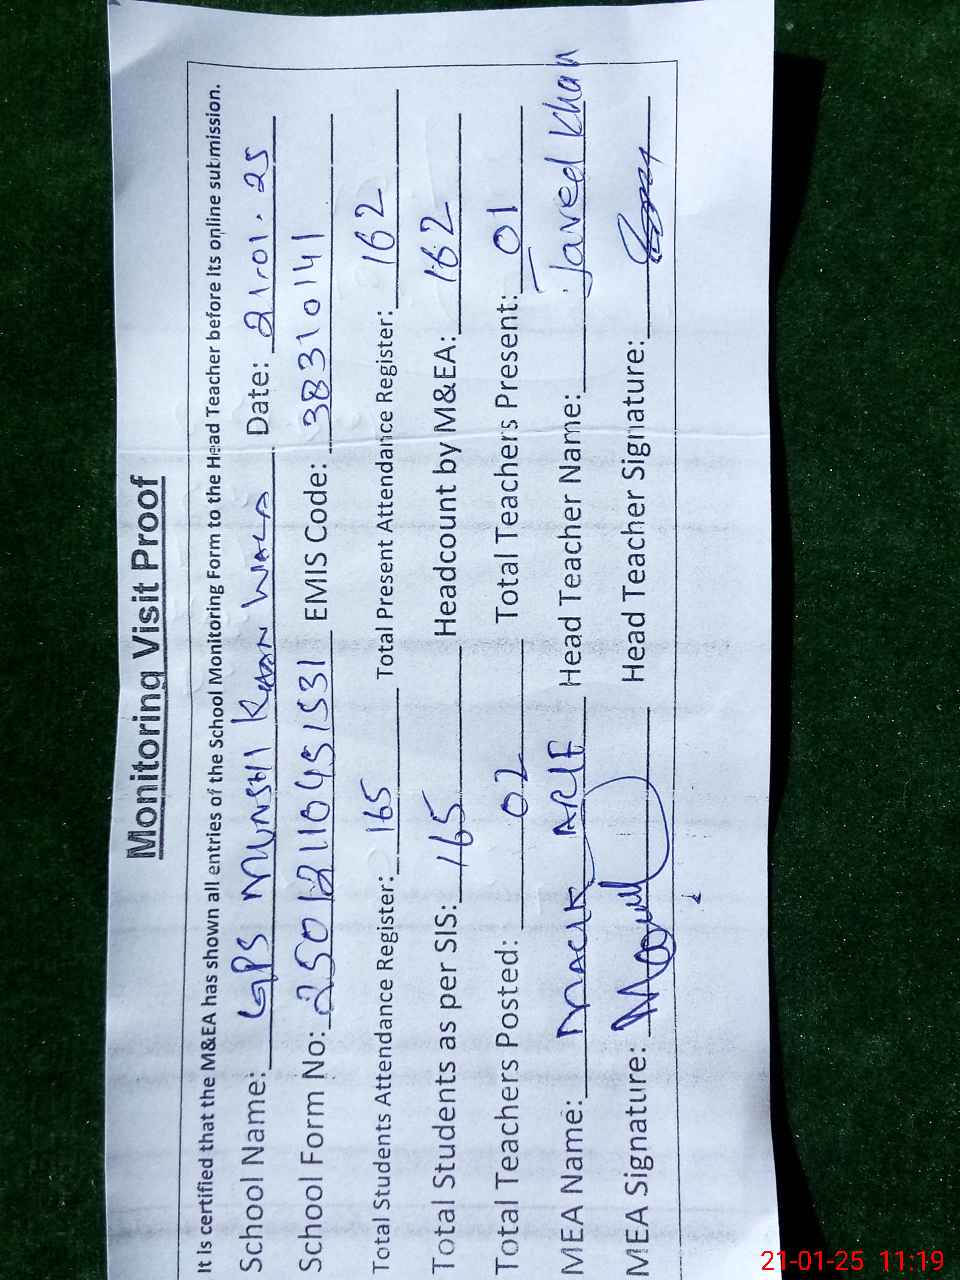 Monitoring Visit Proof
It is certified that the M&EA has shown all entries of the School Monitoring Form to the Head Teacher before its online submission.
School Name: GPS MUNSHI KHAN WALA Date: 21.01.25
School Form No: 25012110451531 EMIS Code: 38310141
Total Students Attendance Register: 165 Total Present Attendance Register: 162
Total Students as per SIS: 165 Headcount by M&EA: 162
Total Teachers Posted: 02 Total Teachers Present: 01
MEA Name: MALIK ARIF Head Teacher Name: Javed Khan
MEA Signature: Head Teacher Signature:
21-01-25 11:19